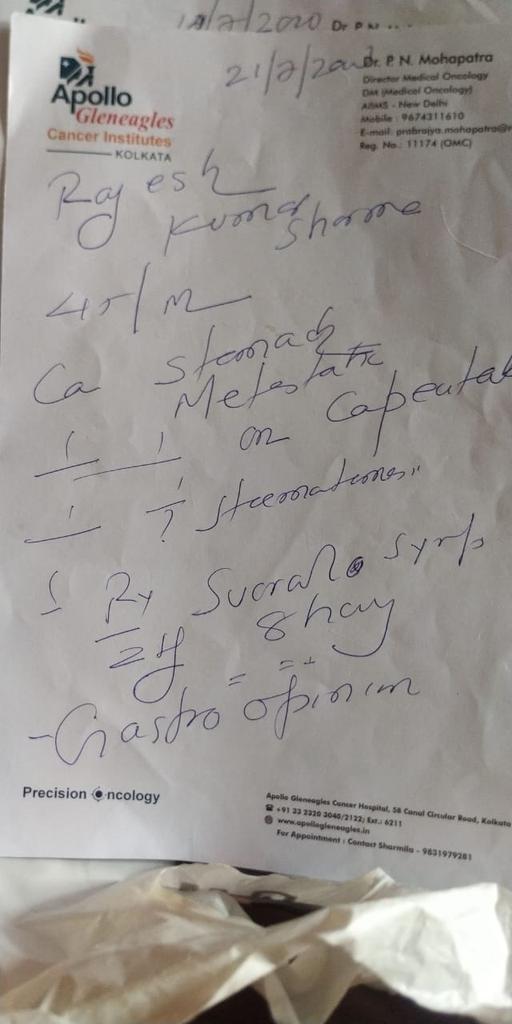 14/7/2020 Dr P N
21/7/20
Dr. P. N. Mohapatra
Director Medical Oncology
DM (Medical Oncology)
AIIMS - New Delhi
Mobile : 9674311610
E-mail: prabrajya.mohapatra@
Reg. No.: 11174 (OMC)
Apollo
Gleneagles
Cancer Institutes
KOLKATA
Rajesh
Kumar Sharma
45/m
Ca Stomach
Metastatic
on Capeutab
?
Rx Sucral O Syrp
8 hay
- Gastro opinion
Precision Oncology
Apollo Gleneagles Cancer Hospital, 58 Canal Circular Road, Kolkata
+91 33 2320 3040/2122; Ext.: 6211
www.apollogleneagles.in
For Appointment : Contact Sharmila - 9831979281